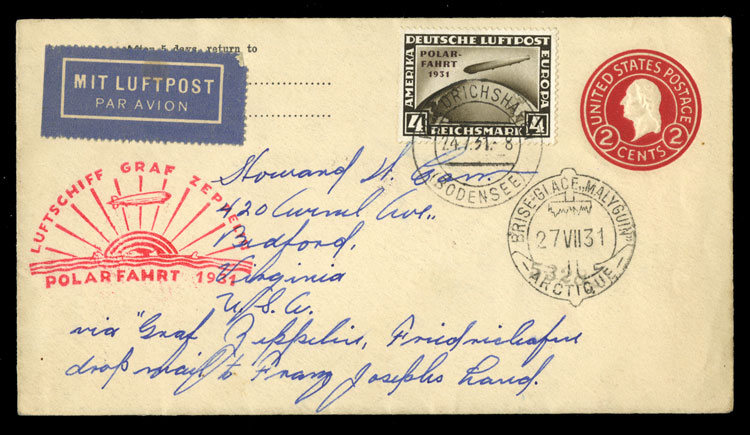 After 5 days, return to
MIT LUFTPOST
PAR AVION
DEUTSCHE LUFTPOST
AMERIKA
EUROPA
POLAR-
FAHRT
1931
4
4
REICHSMARK
UNITED STATES POSTAGE
2
2
CENTS
24.7.31.- 8
(BODENSEE)
LUFTSCHIFF GRAF ZEPPELIN
POLARFAHRT 1931
BRISE-GLACE „MALYGUIN"
27 VII 31
ARCTIQUE
Howard H.
420 Ave.,
Bedford,
Virginia
U.S.A.
via "Graf Zeppelin, Friedrichshafen
drop mail to Franz Josephs Land.